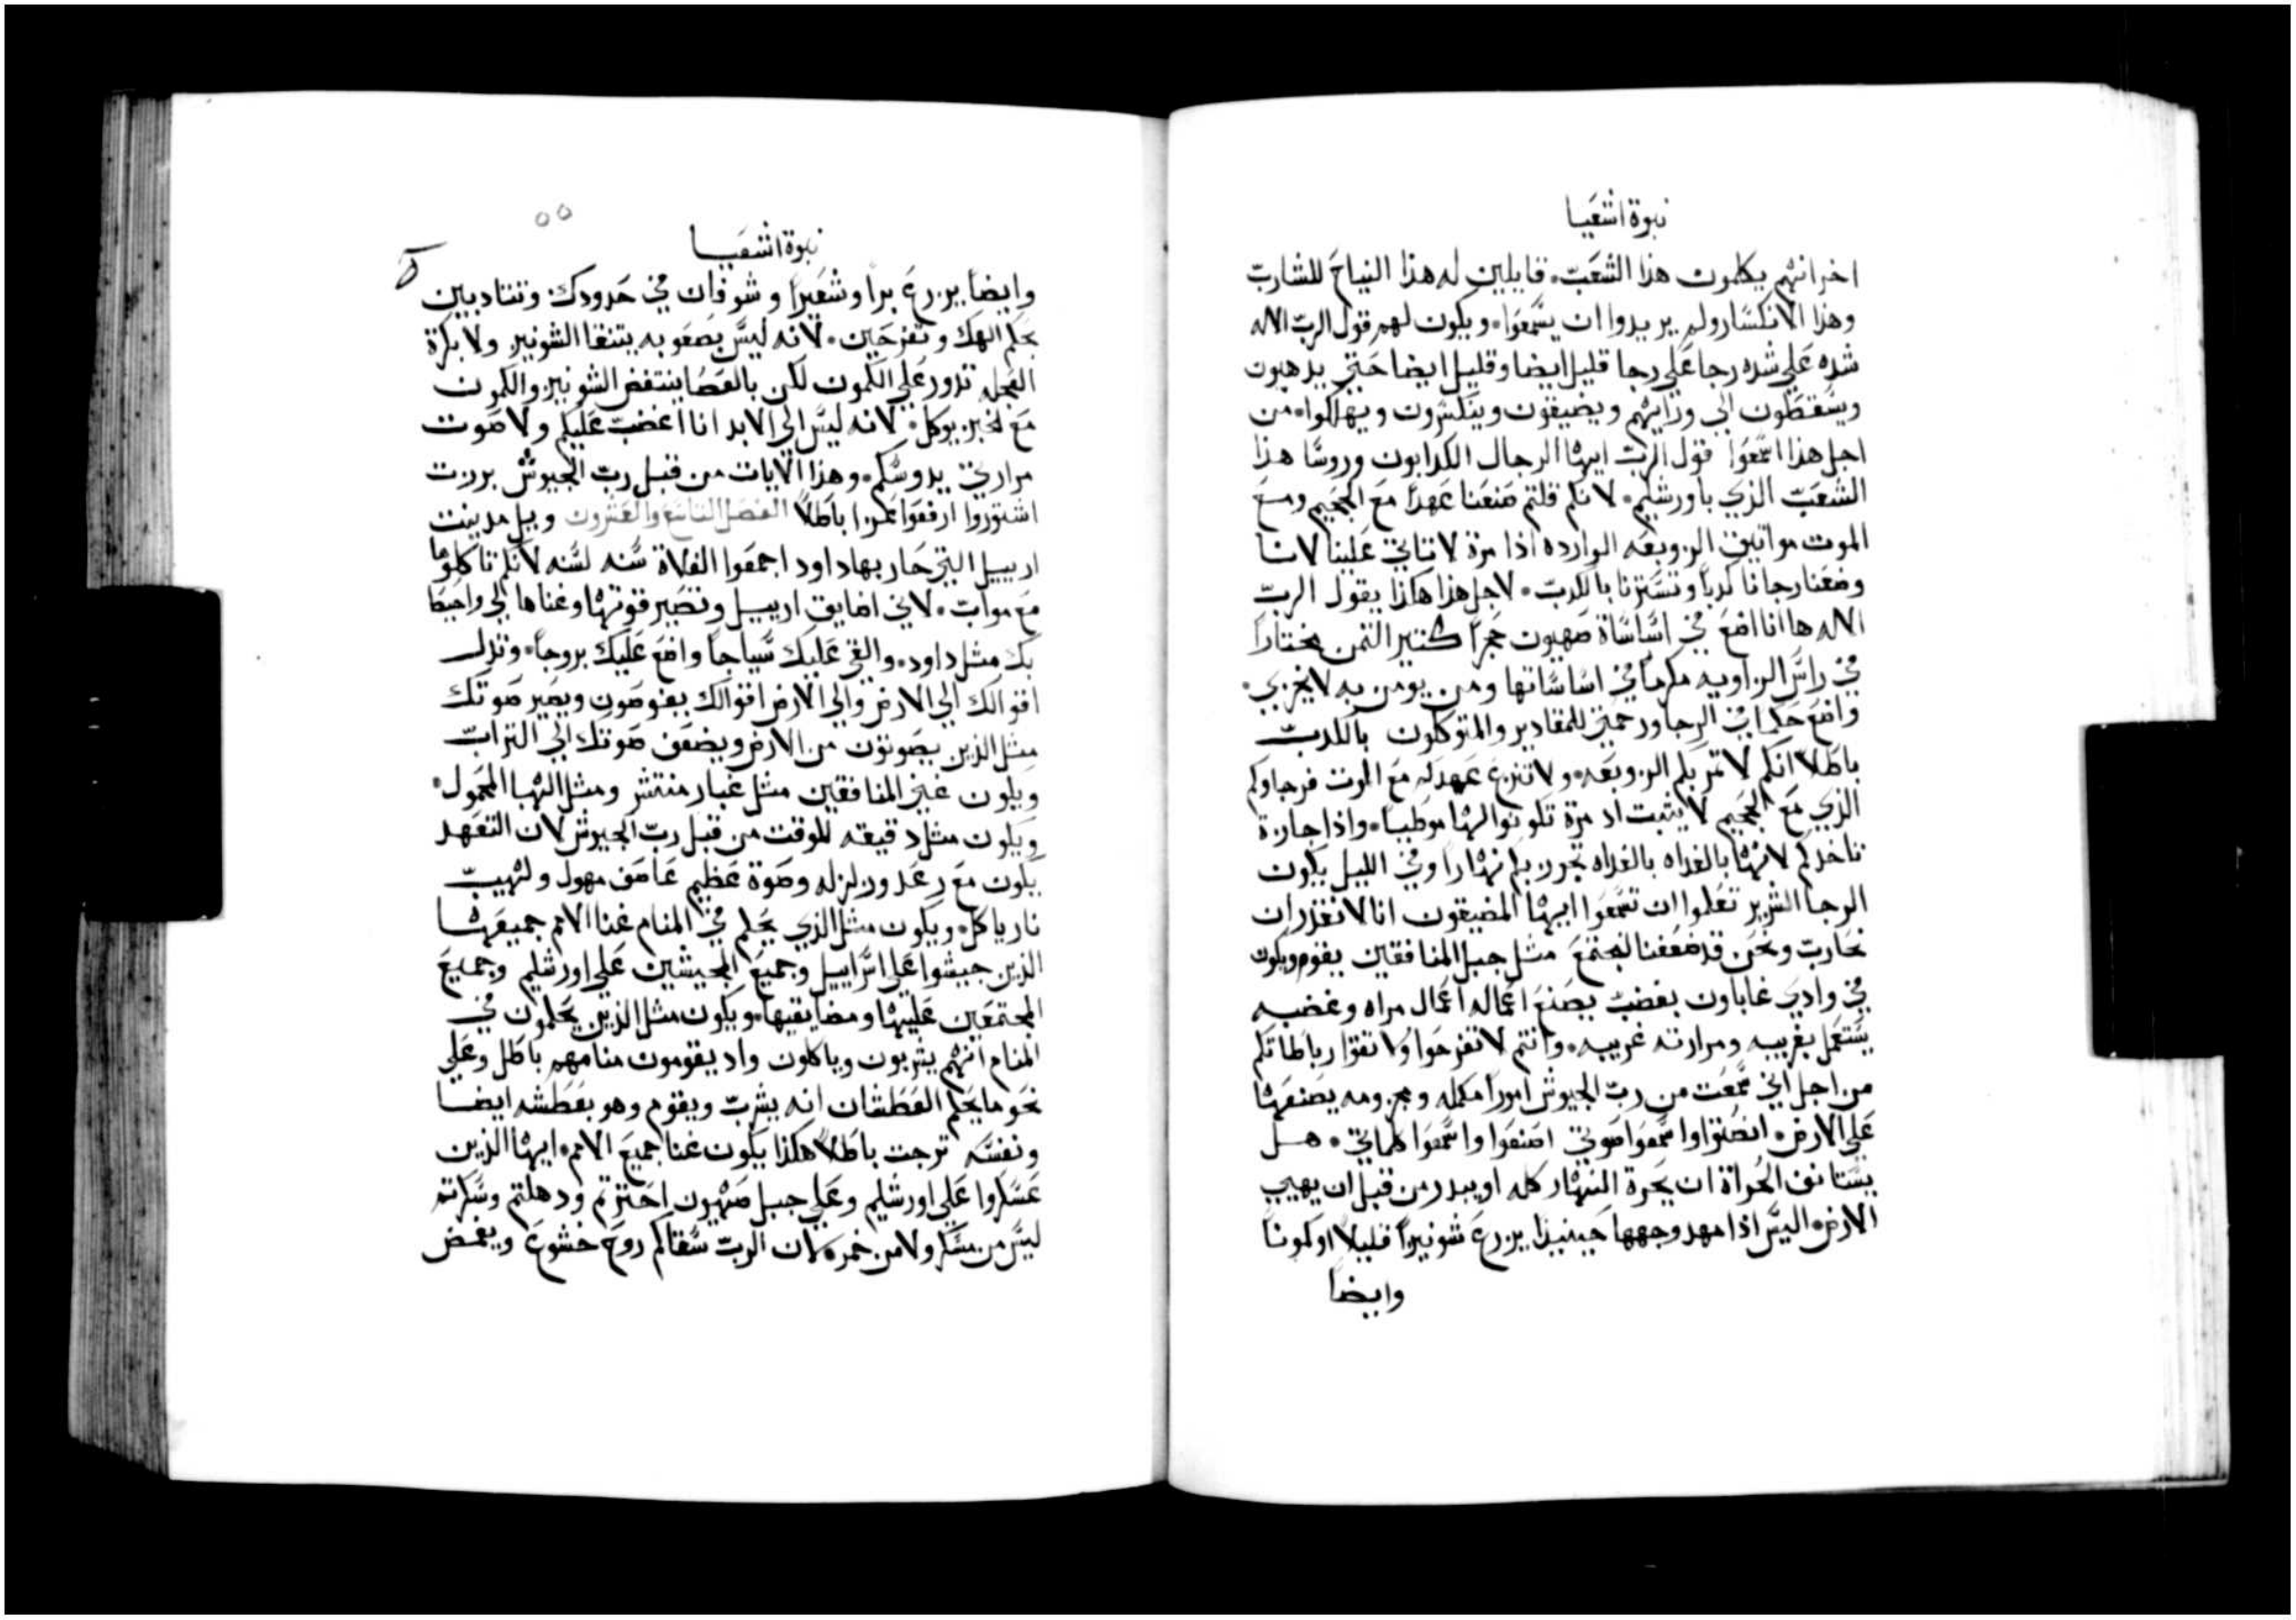 نبوة اشعيا
اخر انهم يكلمون هذا الشعب. قايلين له هذا النياح للشارب
وهذا الانكسار ولم يريدوا ان يسمعوا. ويكون لهم قول الرب الاله
شده علي شده رجا علي رجا قليل ايضا وقليل ايضا حتي يذهبون
ويسقطون الي ورايهم ويضيقون وينكسرون ويهلكوا. من
اجل هذا اسمعوا قول الرب ايها الرجال الكدابون وروسا هذا
الشعب الذي باورشليم. لانكم قلتم صنعنا عهدا مع الجحيم ومع
الموت مواتيق الزوبعه الوارده اذا مرة لا تاتي علينا لاننا
وضعنا رجانا كدبا وتسترنا بالكدب. لاجل هذا هكذا يقول الرب
الاله ها انا اضع في اساساة صهيون حجرا كتير التمن مختارا
في راس الزاويه مكرما في اساساتها ومن يومن به لا يخزي.
واضع حكما في الرجا ورحمتي للمقادير والمتوكلون بالكدب
باطلا انكم لا تمر بكم الزوبعه. ولا تنزع عهدكم مع الموت فرجاوكم
الذي مع الجحيم لا يثبت اد مرة تكونوا لها موطيا. واذا جازة
تاخدكم لانها بالغداه بالغداه تجوز بكم نهارا وفي الليل يكون
الرجا الشرير تعلموا ان تسمعوا ايها المضيقون انا لا نقدر ان
نحارب ونحن قد ضعفنا لنجتمع مثل جبل المنافقين يقوم ويكون
في وادي غاباون بغضب يصنع اعماله اعمال مراه وغضبه
يستعمل بغريبه ومرارته غريبه. وانتم لا تفرحوا ولا تقوا رباطاتكم
من اجل اني سمعت من رب الجيوش امورا مكمله ومجزومه يصنعها
علي الارض. انصتوا واسمعوا صوتي اصنعوا واسمعوا كلماتي. هل
يستانف الحراة ان يحرة النهار كله او يبدر من قبل ان يهيب
الارض. اليس اذا مهد وجهها حينيذا يزرع شونيزا قليلا او كمونا
وايضا
نبوة اشعيا
٥٥
وايضا يزرع برا وشعيرا وشوفان في حدودك. وتتادبين
بحكم الهك وتفرحين. لانه ليس بصعوبه يتنقا الشونيز ولا بكرة
العجله تدور علي الكمون لكن بالعصا ينتفض الشونيز والكمون
مع الخبز يوكل. لانه ليس الي الابد انا اغضب عليكم ولا صوت
مرارتي يدوسكم. وهذا الايات من قبل رب الجيوش برزت
اشتوروا ارفعوا عكزا باطلا الفصل التاسع والعشرون ويل مدينت
ارييل التي حاربها داود اجمعوا الغلاة سنه لسنه لانكم تاكلوها
مع مواب. لاني اضايق ارييل وتصير قوتها وغناها لي واحيط
بك مثل داود. والقي عليك سياجا واضع عليك بروجا. وتدل
اقوالك الي الارض والي الارض اقوالك يغوصون ويصير صوتك
مثل الذين يصوتون من الارض ويضعف صوتك الي التراب
ويكون غني المنافقين مثل غبار منتشر ومثل الهبا المحمول.
ويكون مثل دقيقه للوقت من قبل رب الجيوش لان التعهد
يكون مع رعد وزلزله وصوة عظيم عاصف مهول ولهيب
نار ياكل. ويكون مثل الذي يحلم في المنام غنا الامم جميعها
الذين جيشوا علي اسراييل وجميع المجيشين علي اورشليم وجميع
المجتمعين عليها ومضايقيها. ويكون مثل الذين يحلمون في
المنام انهم يشربون وياكلون واد يقومون منامهم باطل وعلي
نحو ما يحلم العطشان انه يشرب ويقوم وهو بعطشه ايضا
ونفسه ترجت باطلا هكذا يكون غنا جميع الامم. ايها الذين
عسكروا علي اورشليم وعلي جبل صهيون احترتم ودهلتم وسكرتم
ليس من مسكر ولا من خمره لان الرب سقاكم روح خشوع ويغمض